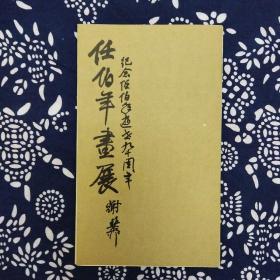 纪念任伯年逝世九十周年
任伯年画展
谢稚